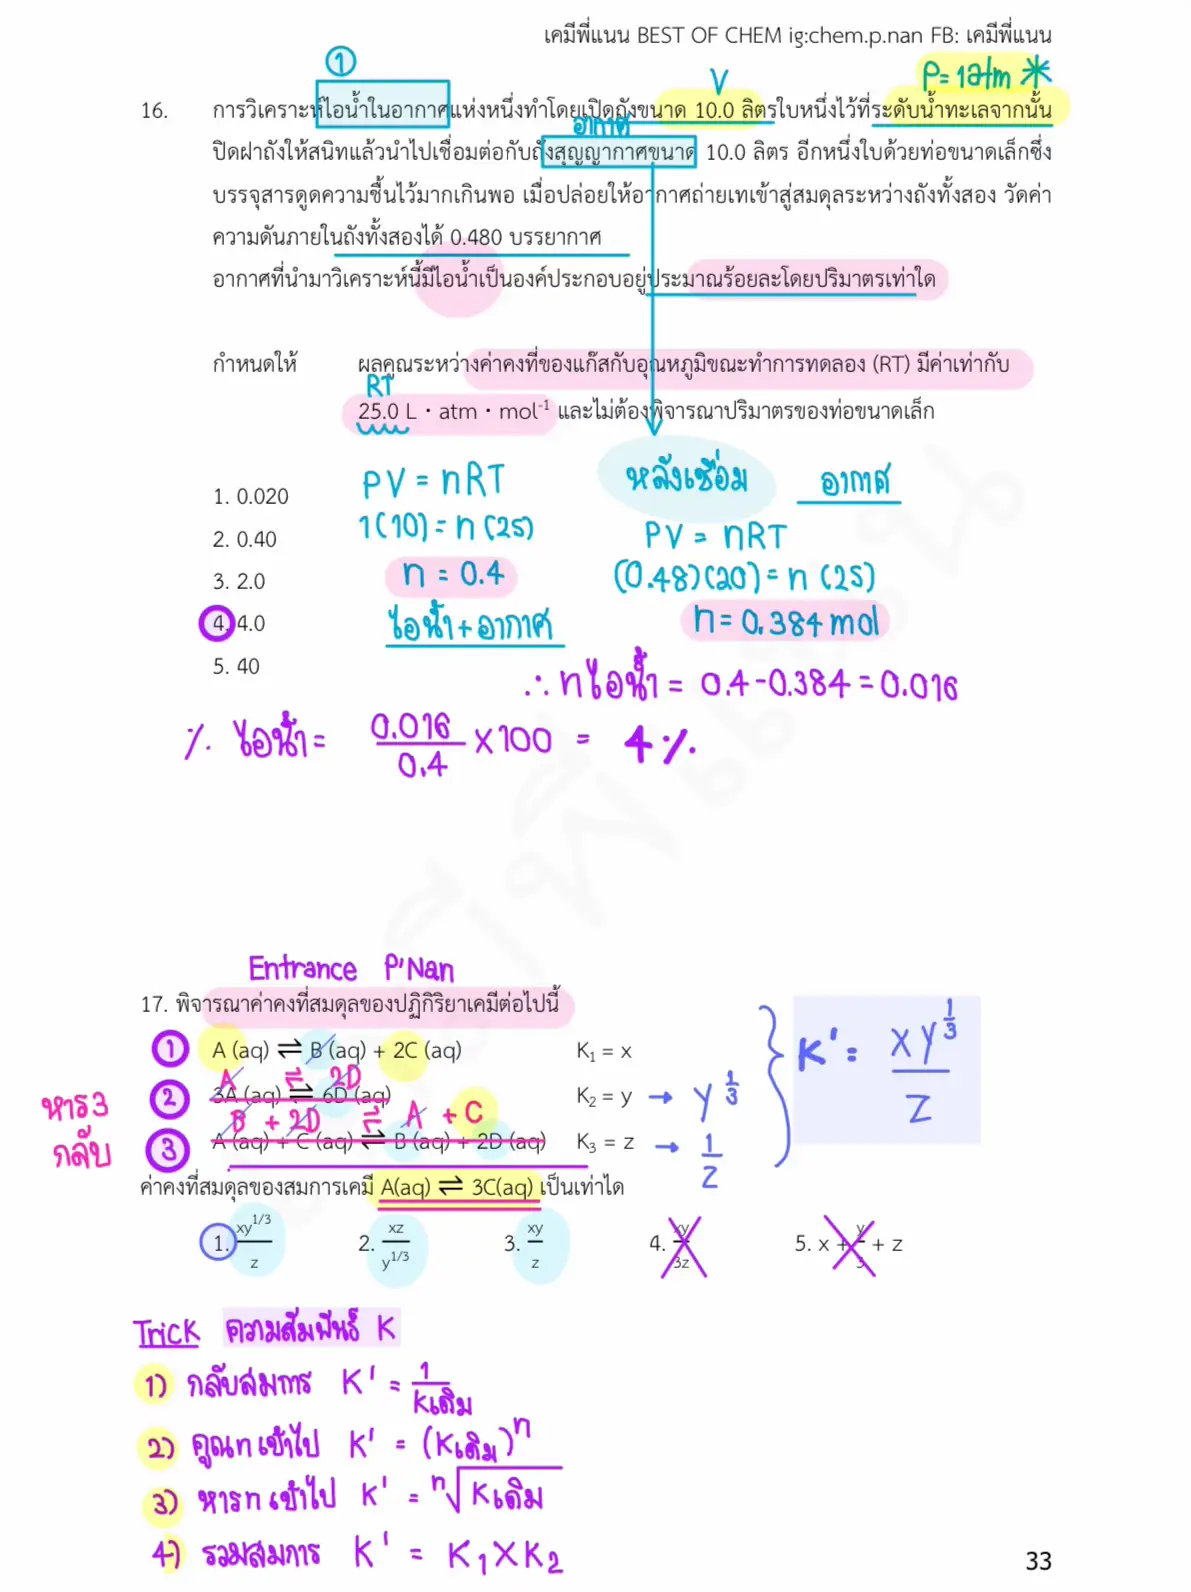 เคมีพี่แนน BEST OF CHEM ig:chem.p.nan FB: เคมีพี่แนน
1
V
P = 1 atm *
16. การวิเคราะห์ไอน้ำในอากาศแห่งหนึ่งทำโดยเปิดถังขนาด 10.0 ลิตรใบหนึ่งไว้ที่ระดับน้ำทะเลจากนั้น
อากาศ
ปิดฝาถังให้สนิทแล้วนำไปเชื่อมต่อกับถังสุญญากาศขนาด 10.0 ลิตร อีกหนึ่งใบด้วยท่อขนาดเล็กซึ่ง
บรรจุสารดูดความชื้นไว้มากเกินพอ เมื่อปล่อยให้อากาศถ่ายเทเข้าสู่สมดุลระหว่างถังทั้งสอง วัดค่า
ความดันภายในถังทั้งสองได้ 0.480 บรรยากาศ
อากาศที่นำมาวิเคราะห์นี้มีไอน้ำเป็นองค์ประกอบอยู่ประมาณร้อยละโดยปริมาตรเท่าใด
กำหนดให้ ผลคูณระหว่างค่าคงที่ของแก๊สกับอุณหภูมิขณะทำการทดลอง (RT) มีค่าเท่ากับ
RT
25.0 L · atm · mol⁻¹ และไม่ต้องพิจารณาปริมาตรของท่อขนาดเล็ก
1. 0.020
2. 0.40
3. 2.0
4. 4.0
5. 40
PV = nRT
1(10) = n (25)
n = 0.4
ไอน้ำ + อากาศ
หลังเชื่อม อากาศ
PV = nRT
(0.48)(20) = n (25)
n = 0.384 mol
∴ n ไอน้ำ = 0.4 - 0.384 = 0.016
% ไอน้ำ = 0.016/0.4 × 100 = 4 %
Entrance P'Nan
17. พิจารณาค่าคงที่สมดุลของปฏิกิริยาเคมีต่อไปนี้
1 A (aq) ⇌ B (aq) + 2C (aq) K₁ = x
A ⇌ 2D
2 3A (aq) ⇌ 6D (aq) K₂ = y → y^1/3
B + 2D ⇌ A + C
3 A (aq) + C (aq) ⇌ B (aq) + 2D (aq) K₃ = z → 1/z
หาร 3
กลับ
K' = xy^1/3 / z
ค่าคงที่สมดุลของสมการเคมี A(aq) ⇌ 3C(aq) เป็นเท่าใด
1. xy^1/3 / z 2. xz / y^1/3 3. xy / z 4. xy / 3z 5. x + y/3 + z
Trick ความสัมพันธ์ K
1) กลับสมการ K' = 1/Kเดิม
2) คูณ n เข้าไป K' = (Kเดิม)ⁿ
3) หาร n เข้าไป K' = ⁿ√Kเดิม
4) รวมสมการ K' = K₁ × K₂
33